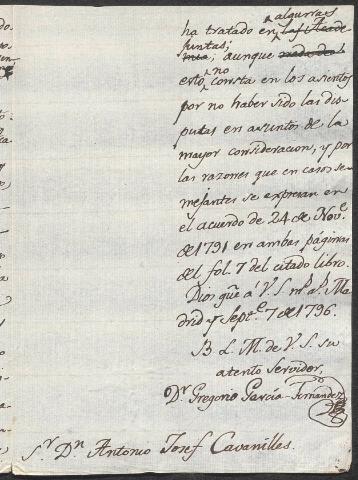 algunas
ha tratado en las Acade-
juntas;
mia; aunque nada de
no
esto consta en los asientos
por no haber sido las dis-
putas en asuntos de la
mayor consideracion, y por
las razones que en casos se-
mejantes se expresan en
el acuerdo de 24 de Nov.e
de 1791 en ambas páginas
del fol. 7 del citado libro.
Dios gue. á V. S. ms. as. Ma
drid y Sept.e 7 de 1796.
B. L. M. de V. S. su
atento servidor,
Dr. Gregorio García Fernandez
Sr. Dn. Antonio Josef Cavanilles.